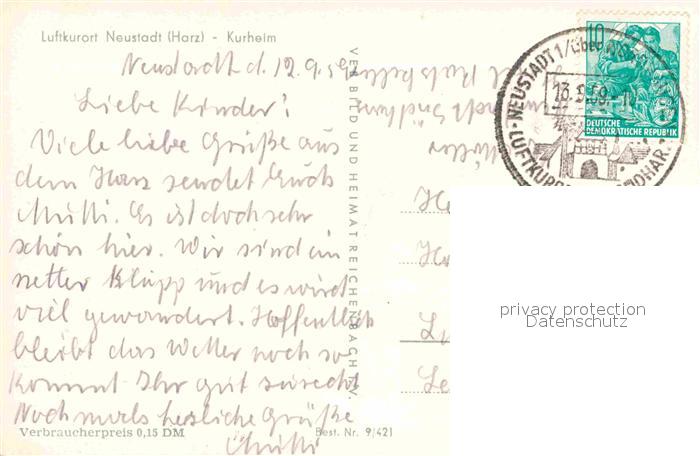 Luftkurort Neustadt (Harz) - Kurheim
Neustadt d. 12.9.59
Liebe Kinder!
Viele liebe Grüße aus
dem Harz sendet Euch
Mutti. Es ist doch sehr
schön hier. Wir sind ein
netter Klupp und es wird
viel gewandert. Hoffentlich
bleibt das Wetter noch so
Kommt Ihr gut zurecht
Nochmals herzliche Grüße
Mutti
Verbraucherpreis 0,15 DM
Best. Nr. 9/421
VEB BILD UND HEIMAT REICHENBACH
10
DEUTSCHE
DEMOKRATISCHE REPUBLIK
NEUSTADT 1 / über
13.9.59
LUFTKURORT
privacy protection
Datenschutz